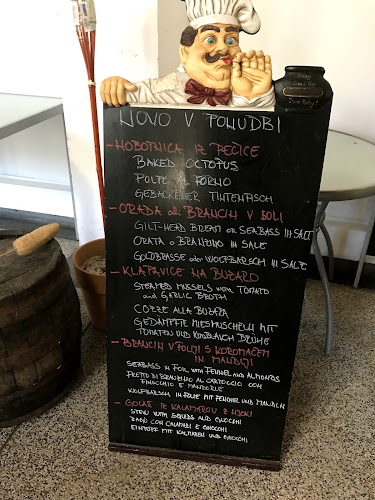 NOVO V PONUDBI
- HOBOTNICA IZ PEČICE
BAKED OCTOPUS
POLPO AL FORNO
GEBACKENER TINTENFISCH
- ORADA ali BRANCIN V SOLI
GILT-HEAD BREAM or SEABASS IN SALT
ORATA o BRANZINO IN SALE
GOLDBRASSE oder WOLFBARSCH IN SALZ
- KLAPAVICE NA BUZARO
STEAMED MUSSELS WITH TOMATO
and GARLIC BROTH
COZZE ALLA BUZARA
GEDÄMPFTE MIESMUSCHELN MIT
TOMATEN UND KNOBLAUCH BRÜHE
- BRANCIN V FOLIJI S KOROMAČEM
IN MANDLJI
SEABASS IN FOIL WITH FENNEL AND ALMONDS
FILETTO DI BRANZINO AL CARTOCCIO CON
FINOCCHIO E MANDORLE
WOLFBARSCH IN FOLIE MIT FENCHEL UND MANDELN
- GOLAŽ IZ KALAMAROV Z NJOKI
STEW WITH SQUIDS AND GNOCCHI
RAGÙ CON CALAMARI E GNOCCHI
EINTOPF MIT KALMAREN UND GNOCCHI